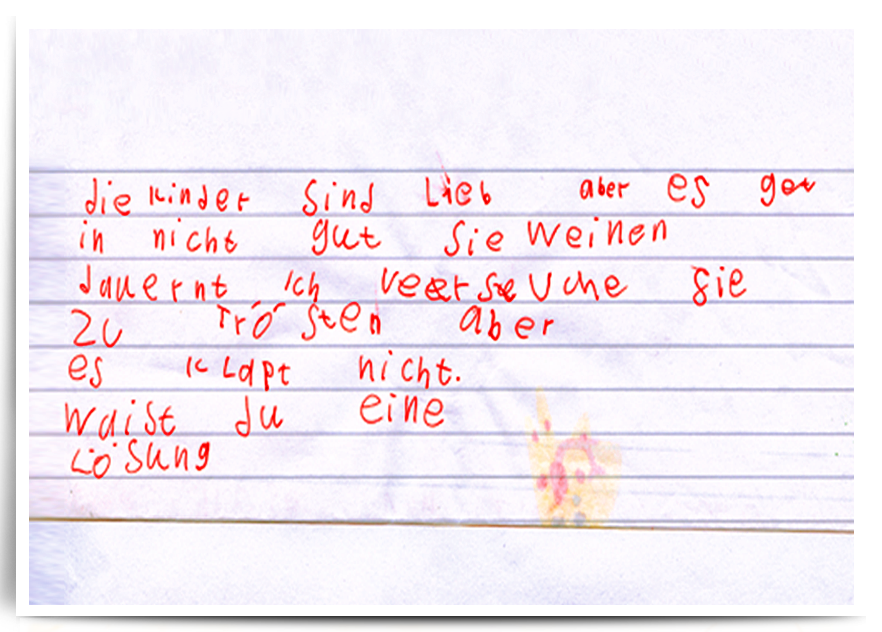 die kinder sind Lieb aber es get
in nicht gut sie weinen
dauernt ich versuche sie
zu trösten aber
es klapt nicht.
waist du eine
Lösung